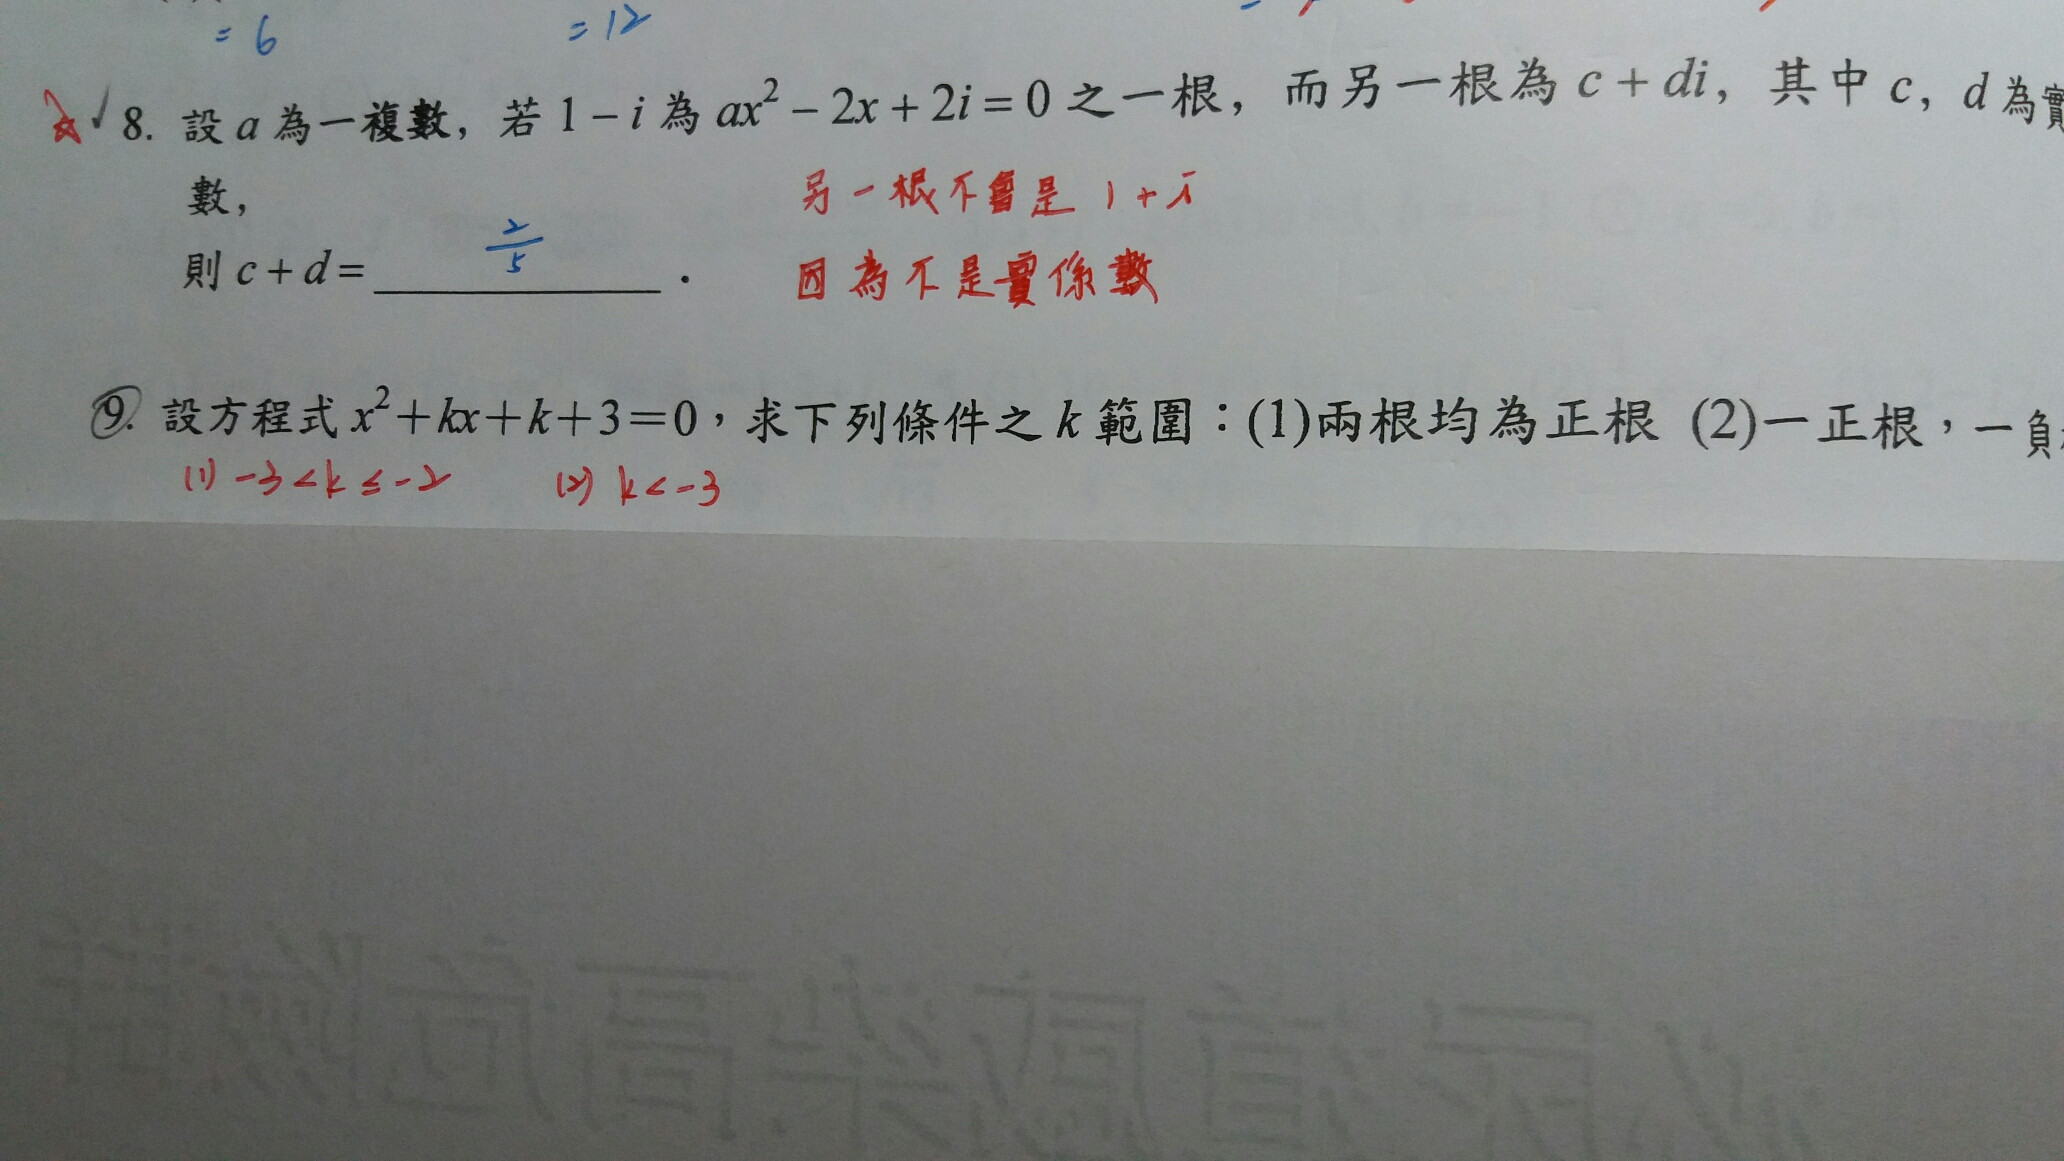 = 6
= 12
8. 設 a 為一複數，若 1 − i 為 ax² − 2x + 2i = 0 之一根，而另一根為 c + di，其中 c，d 為實
數，
另一根不會是 1 + i
則 c + d = 2/5 .
因為不是實係數
9. 設方程式 x² + kx + k + 3 = 0，求下列條件之 k 範圍：(1)兩根均為正根 (2)一正根，一負
(1) −3 < k ≤ −2 (2) k < −3